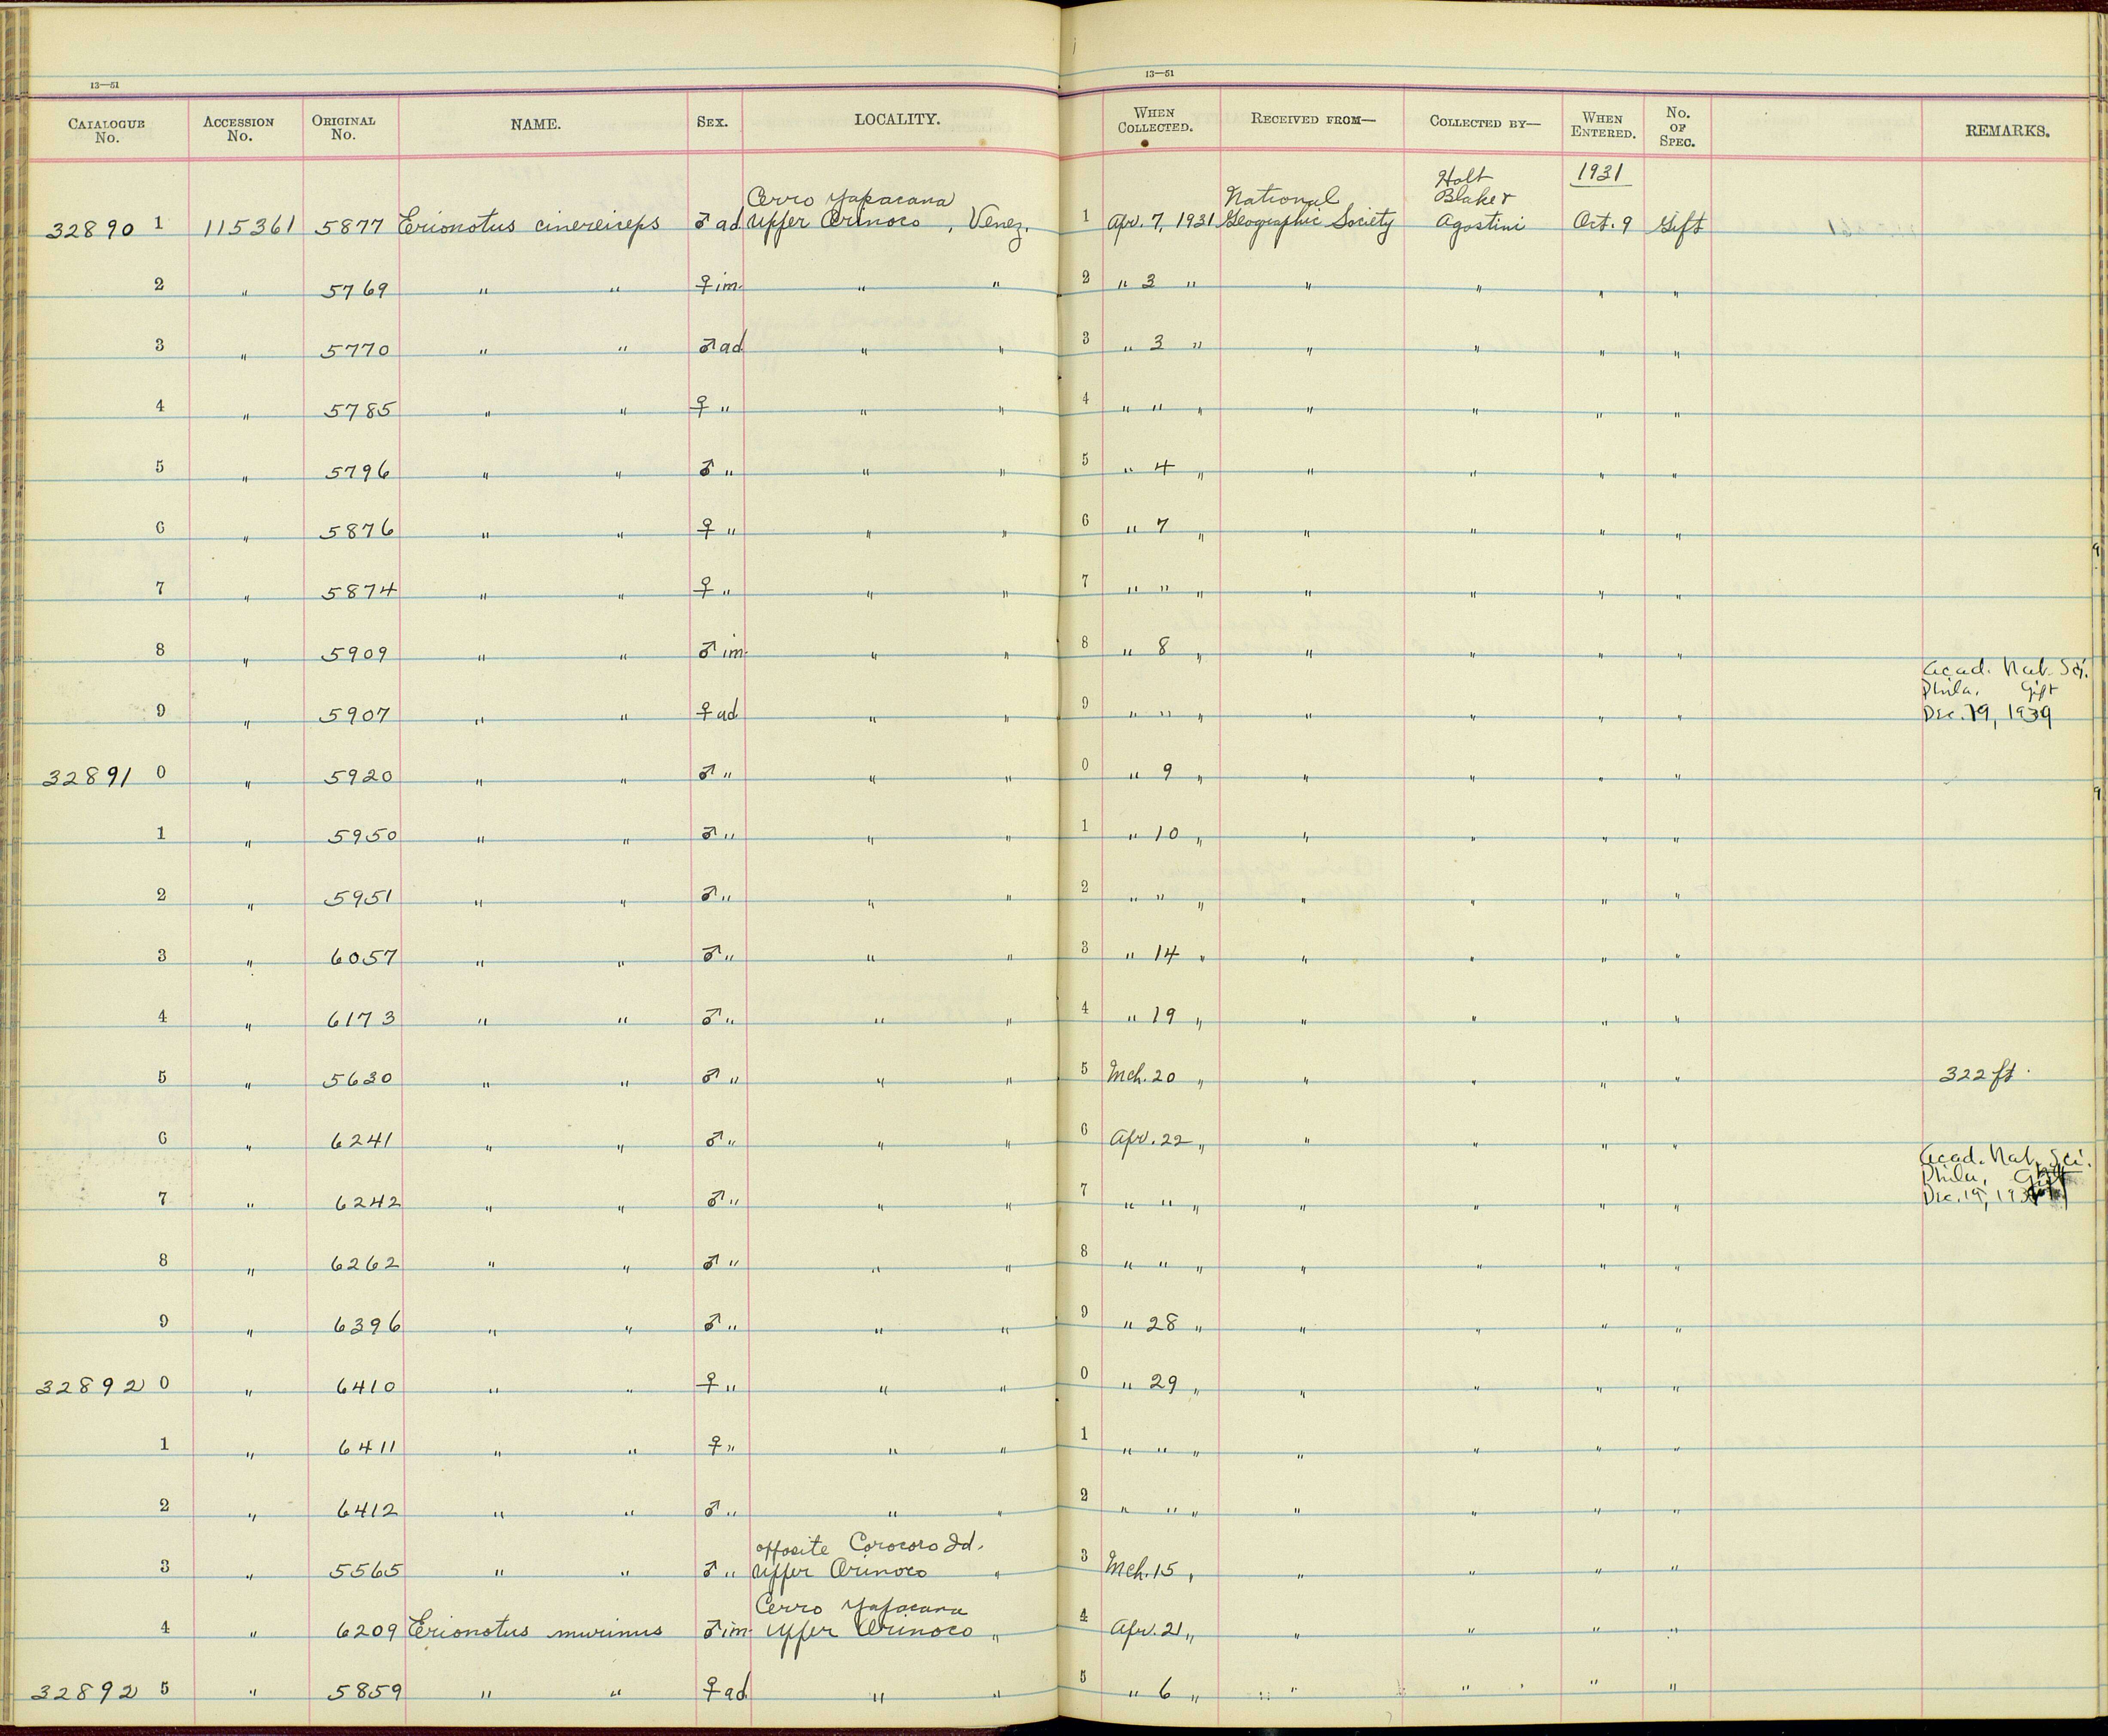 13—51
13—51
CATALOGUE No. ACCESSION No. ORIGINAL No. NAME. SEX. LOCALITY. WHEN COLLECTED. RECEIVED FROM— COLLECTED BY— WHEN ENTERED. No. OF SPEC. REMARKS.
Cerro Yapacana National Holt Blaker 1931
32890 1 115361 5877 Erionotus cinereiceps ♂ ad Upper Orinoco, Venez. 1 Apr. 7, 1931 Geographic Society Agostini Oct. 9 Gift
2 " 5769 " " ♀ im. " " 2 " 3 " " " " "
3 " 5770 " " ♂ ad " " 3 " 3 " " " " "
4 " 5785 " " ♀ " " " 4 " " " " " " "
5 " 5796 " " ♂ " " " 5 " 4 " " " " "
6 " 5876 " " ♀ " " " 6 " 7 " " " " "
7 " 5874 " " ♀ " " " 7 " " " " " " "
8 " 5909 " " ♂ im. " " 8 " 8 " " " " "
Acad. Nat. Sci.
Phila. Gift
9 " 5907 " " ♀ ad " " 9 " " " " " " " Dec. 19, 1939
32891 0 " 5920 " " ♂ " " " 0 " 9 " " " " "
1 " 5950 " " ♂ " " " 1 " 10 " " " " "
2 " 5951 " " ♂ " " " 2 " " " " " " "
3 " 6057 " " ♂ " " " 3 " 14 " " " " "
4 " 6173 " " ♂ " " " 4 " 19 " " " " "
5 " 5630 " " ♂ " " " 5 Mch. 20 " " " " " 322 ft.
6 " 6241 " " ♂ " " " 6 Apr. 22 " " " " "
Acad. Nat. Sci.
Phila. Gift
7 " 6242 " " ♂ " " " 7 " " " " " " " Dec. 19,
8 " 6262 " " ♂ " " " 8 " " " " " " "
9 " 6396 " " ♂ " " " 9 " 28 " " " " "
32892 0 " 6410 " " ♀ " " " 0 " 29 " " " " "
1 " 6411 " " ♀ " " " 1 " " " " " " "
2 " 6412 " " ♂ " " " 2 " " " " " " "
opposite Corocoro Id.
3 " 5565 " " ♂ " Upper Orinoco " 3 Mch. 15 " " " " "
Cerro Yapacana
4 " 6209 Erionotus murinus ♂ im. Upper Orinoco " 4 Apr. 21 " " " " "
32892 5 " 5859 " " ♀ ad " " 5 " 6 " " " " "